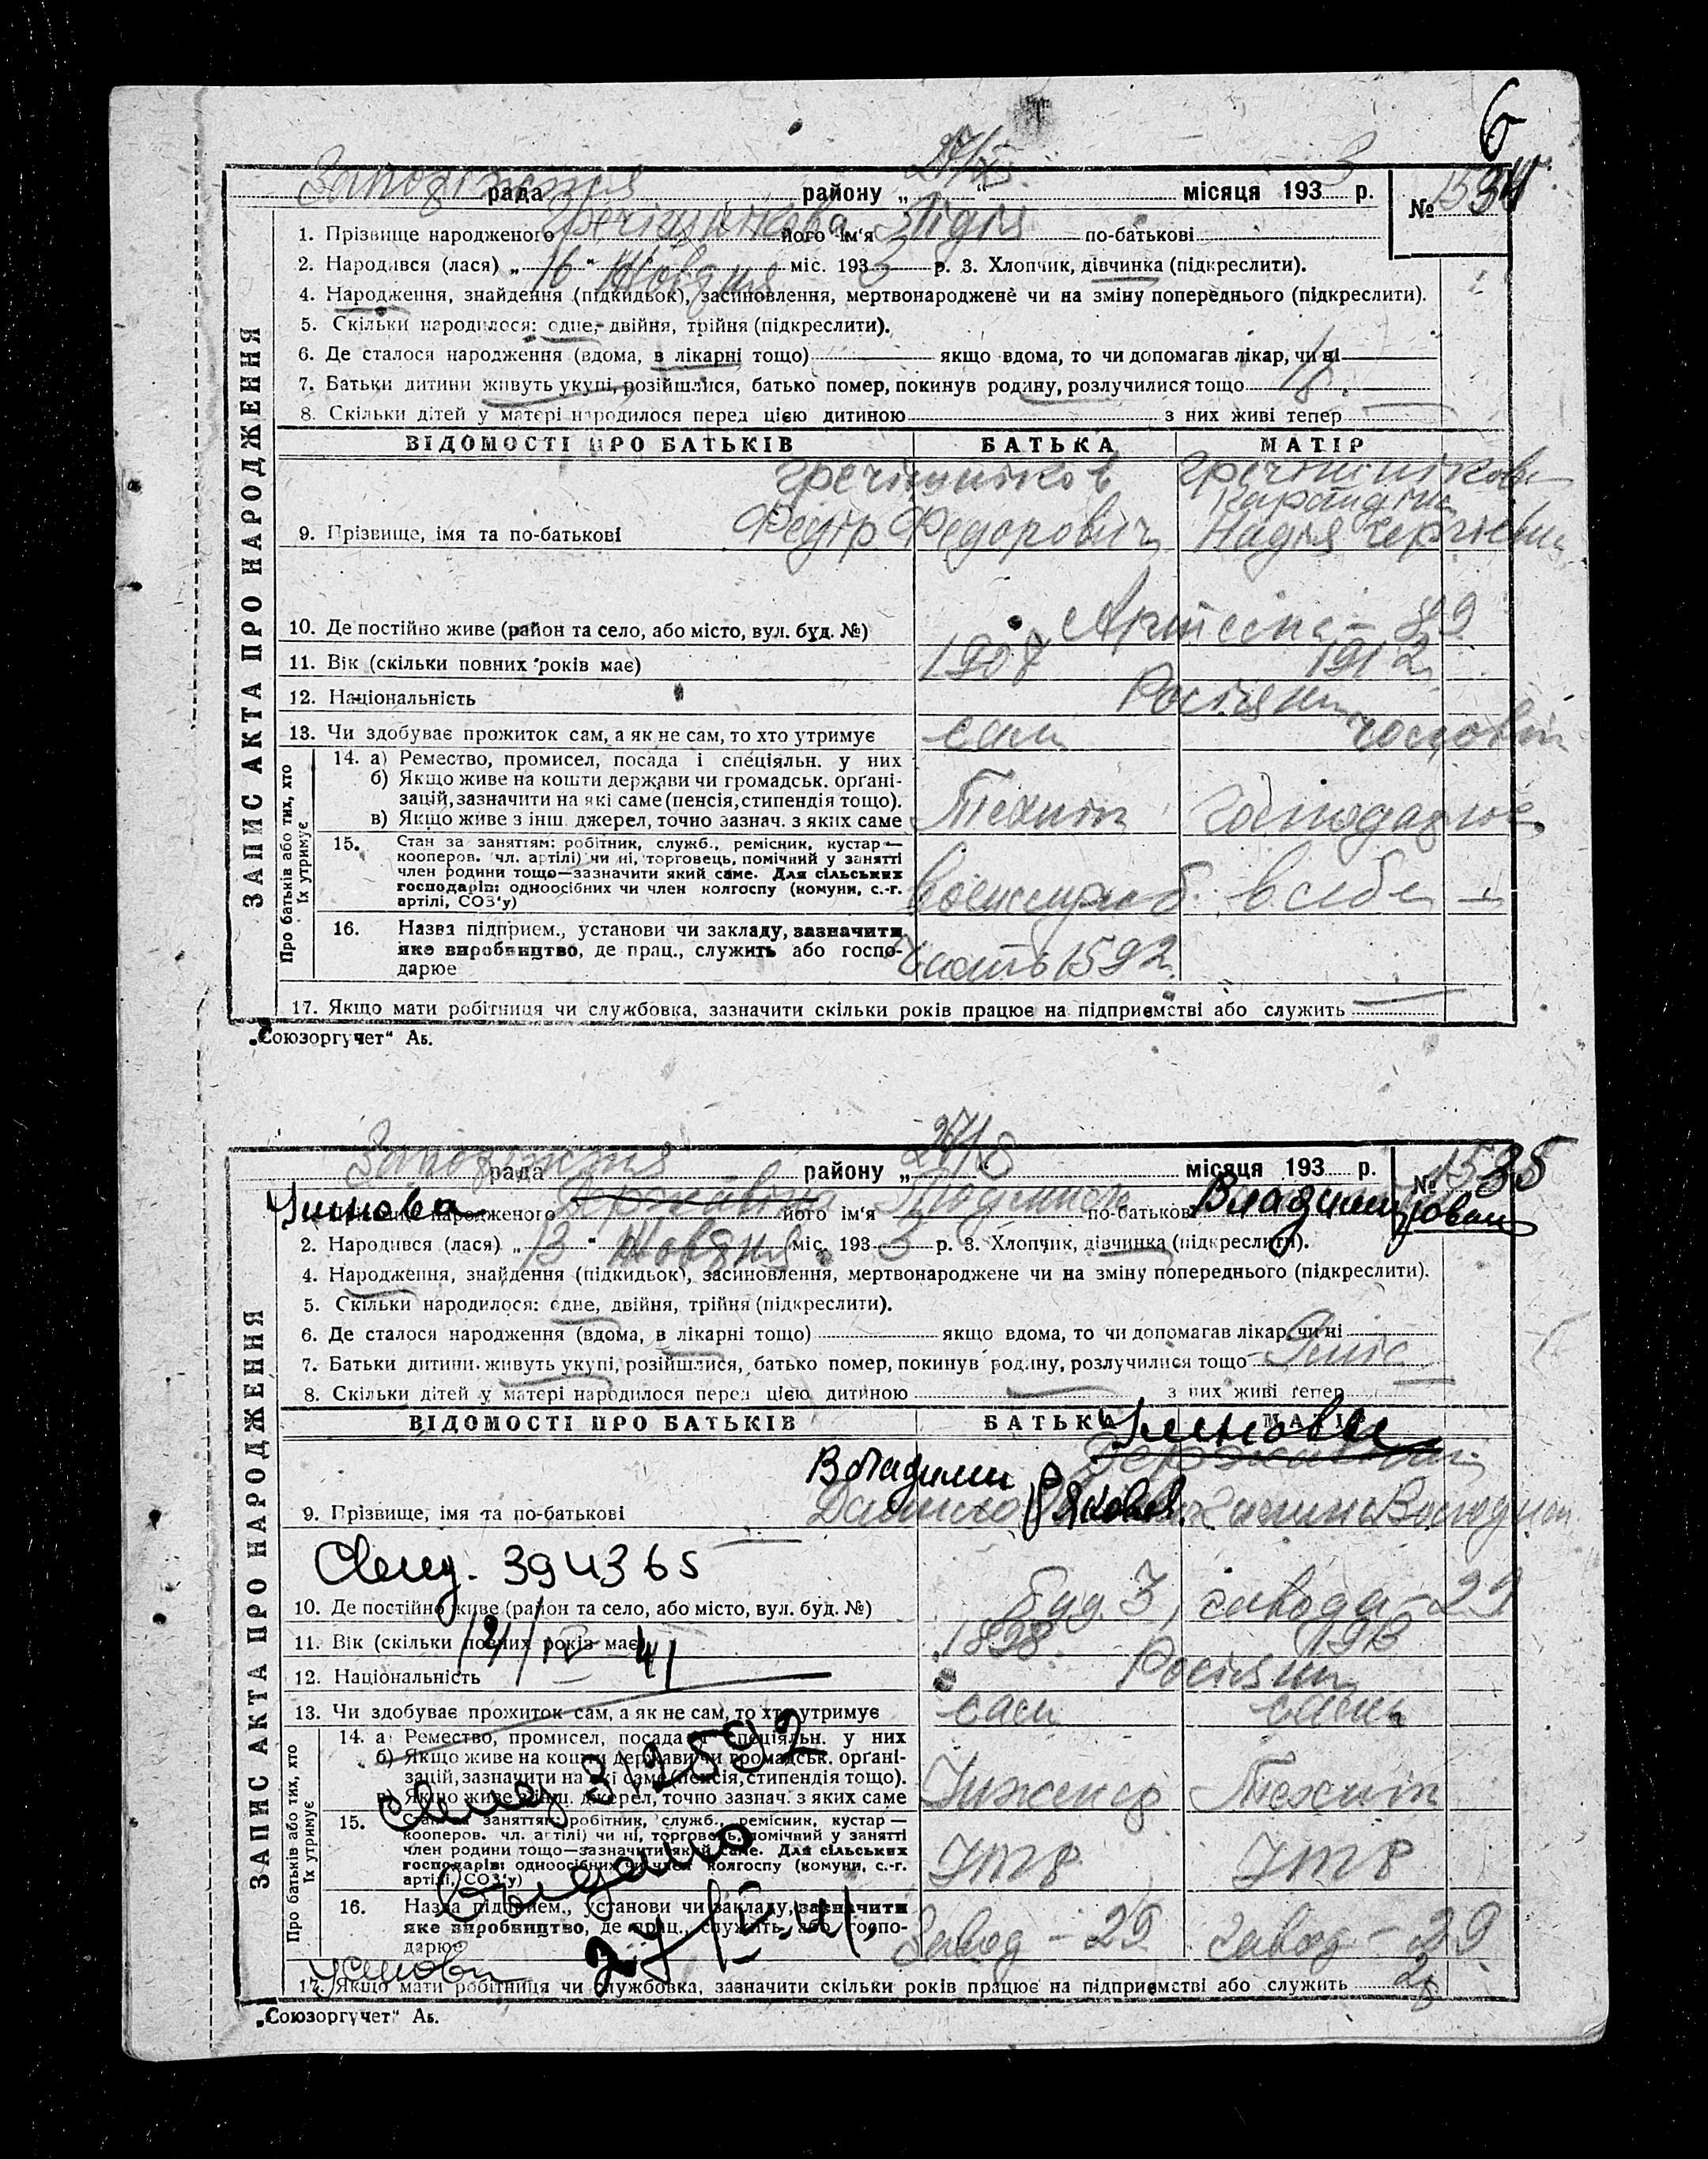 6
Запоріжжя рада району „27/X“ місяця 1933 р. № 1534
ЗАПИС АКТА ПРО НАРОДЖЕННЯ
1. Прізвище народженого Гречішнікова його ім'я Лідія по-батькові
2. Народився (лася) „16“ Жовтня міс. 1933 р. 3. Хлопчик, дівчинка (підкреслити).
4. Народження, знайдення (підкидьок), засиновлення, мертвонароджене чи на зміну попереднього (підкреслити).
5. Скільки народилося: одне, двійня, трійня (підкреслити).
6. Де сталося народження (вдома, в лікарні тощо) якщо вдома, то чи допомагав лікар, чи ні
7. Батьки дитини живуть укупі, розійшлися, батько помер, покинув родину, розлучилися тощо
8. Скільки дітей у матері народилося перед цією дитиною з них живі тепер
ВІДОМОСТІ ПРО БАТЬКІВ БАТЬКА МАТІР
Гречішніков Гречішнікова
9. Прізвище, імя та по-батькові Федір Федорович Надія Сергієвна
10. Де постійно живе (район та село, або місто, вул. буд. №) Артема - 89
11. Вік (скільки повних років має) 1907 1912
12. Національність Росіяни
13. Чи здобуває прожиток сам, а як не сам, то хто утримує сам чоловік
Про батьків або тих, хто їх утримує
14. а) Ремество, промисел, посада і спеціяльн. у них
б) Якщо живе на кошти держави чи громадськ. орґані-
зацій, зазначити на які саме (пенсія, стипендія тощо).
в) Якщо живе з інш. джерел, точно зазнач. з яких саме Технік Господарює
15. Стан за заняттям: робітник, служб., ремісник, кустар—
кооперов. чл. артілі) чи ні, торговець, помічний у занятті
член родини тощо—зазначити який саме. Для сільських
господарів: одноосібних чи член колгоспу (комуни, с.-г.
артілі, СОЗ'у) Военслужб. в себе
16. Назва підприєм., установи чи закладу, зазначити
яке виробництво, де прац., служить або госпо-
дарює Часть 1592
17. Якщо мати робітниця чи службовка, зазначити скільки років працює на підприємстві або служить
„Союзоргучет“ Аб.
Запоріжжя рада району „27/X“ місяця 193 р. № 1535
ЗАПИС АКТА ПРО НАРОДЖЕННЯ
народженого його ім'я по-батькові Владимировна
2. Народився (лася) „13“ Жовтня міс. 1933 р. 3. Хлопчик, дівчинка (підкреслити).
4. Народження, знайдення (підкидьок), засиновлення, мертвонароджене чи на зміну попереднього (підкреслити).
5. Скільки народилося: одне, двійня, трійня (підкреслити).
6. Де сталося народження (вдома, в лікарні тощо) якщо вдома, то чи допомагав лікар, чи ні
7. Батьки дитини живуть укупі, розійшлися, батько помер, покинув родину, розлучилися тощо
8. Скільки дітей у матері народилося перед цією дитиною з них живі тепер
ВІДОМОСТІ ПРО БАТЬКІВ БАТЬКА МАТІР
Владимир
9. Прізвище, імя та по-батькові Данило Яковл.
След. 394365
10. Де постійно живе (район та село, або місто, вул. буд. №) Буд 3, завода - 29
11. Вік (скільки повних років має) 1898 1913
12. Національність Росіяни
13. Чи здобуває прожиток сам, а як не сам, то хто утримує сам сама
Про батьків або тих, хто їх утримує
14. а) Ремество, промисел, посада і спеціяльн. у них
б) Якщо живе на кошти держави чи громадськ. орґані-
зацій, зазначити на які саме (пенсія, стипендія тощо).
в) Якщо живе з інш. джерел, точно зазнач. з яких саме Інженер Технік
312592
15. Стан за заняттям: робітник, служб., ремісник, кустар—
кооперов. чл. артілі) чи ні, торговець, помічний у занятті
член родини тощо—зазначити який саме. Для сільських
господарів: одноосібних чи член колгоспу (комуни, с.-г.
артілі, СОЗ'у) ІТР ІТР
выдано
16. Назва підприєм., установи чи закладу, зазначити
яке виробництво, де прац., служить або госпо-
дарює Завод - 29 Завод - 29
27/IV.41
17. Якщо мати робітниця чи службовка, зазначити скільки років працює на підприємстві або служить 2
„Союзоргучет“ Аб.